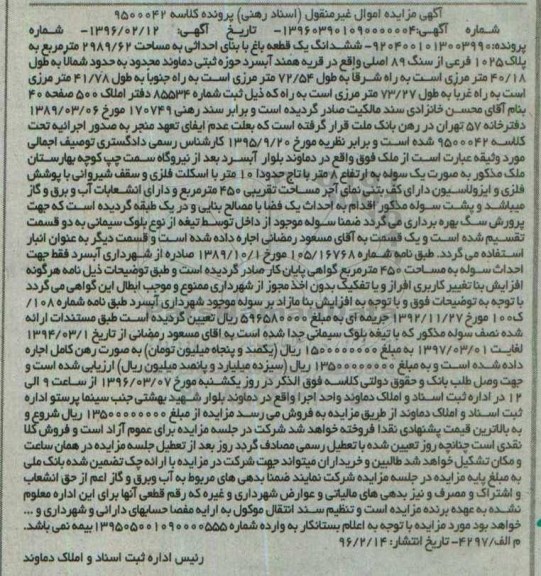 آگهی مزایده اموال غیرمنقول (اسناد رهنی) پرونده کلاسه ۹۵۰۰۰۴۲
شماره آگهی: ۱۳۹۶۰۳۹۰۱۰۹۰۰۰۰۰۰۴- تاریخ آگهی: ۱۳۹۶/۰۲/۱۲- شماره
پرونده: ۹۲۰۴۰۰۱۰۱۳۰۰۳۹۹۰- ششدانگ یک قطعه باغ با بنای احداثی به مساحت ۲۹۸۹/۶۲ مترمربع به
پلاک ۱۰۲۵ فرعی از سنگ ۸۹ اصلی واقع در قریه همند آبسرد حوزه ثبتی دماوند محدود به حدود شمالا به طول
۴۰/۱۸ متر مرزی است به راه شرقا به طول ۷۲/۵۴ متر مرزی است به راه جنوبا به طول ۴۱/۷۸ متر مرزی
است به راه غربا به طول ۷۳/۲۷ متر مرزی است به راه که ذیل ثبت شماره ۸۵۵۳۴ دفتر املاک ۵۰۰ صفحه ۴۰
بنام آقای محسن خانزادی سند مالکیت صادر گردیده است و برابر سند رهنی ۱۷۰۷۴۹ مورخ ۱۳۸۹/۰۳/۰۶
دفترخانه ۵۷ تهران در رهن بانک ملت قرار گرفته است که بعلت عدم ایفای تعهد منجر به صدور اجرائیه تحت
کلاسه ۹۵۰۰۰۴۲ شده است و برابر نظریه مورخ ۱۳۹۵/۹/۲۰ کارشناس رسمی دادگستری توصیف اجمالی
مورد وثیقه عبارت است از ملک فوق واقع در دماوند بلوار آبسرد بعد از نیروگاه سمت چپ کوچه بهارستان
ملک مذکور به صورت یک سوله به ارتفاع ۸ متر با تاج حدودا ۱۰ متر با اسکلت فلزی و سقف شیروانی با پوشش
فلزی و ایزولاسیون دارای کف بتنی نمای آجر مساحت تقریبی ۴۵۰ مترمربع و دارای انشعابات آب و برق و گاز
میباشد و پشت سوله مذکور اقدام به احداث یک فضا با مصالح بنایی و در یک طبقه گردیده است که جهت
پرورش سگ بهره برداری می گردد ضمنا سوله موجود از داخل توسط تیغه از نوع بلوک سیمانی به دو قسمت
تقسیم شده است و یک قسمت به آقای مسعود رمضانی اجاره داده شده است و قسمت دیگر به عنوان انبار
استفاده می گردد. طبق نامه شماره ۱۰۵/۱۶۷۶۸ مورخ ۱۳۸۹/۱۰/۱ صادره از شهرداری آبسرد فقط جهت
احداث سوله به مساحت ۴۵۰ مترمربع گواهی پایان کار صادر گردیده است و طبق توضیحات ذیل نامه هرگونه
افزایش بنا تغییر کاربری افراز و یا تفکیک بدون اخذ مجوز از شهرداری ممنوع و موجب ابطال این گواهی می گردد
با توجه به توضیحات فوق و با توجه به افزایش بنا مازاد بر سوله موجود شهرداری آبسرد طبق نامه شماره ۱۰۸/
ک۱۰۰ مورخ ۱۳۹۲/۱۱/۲۷ جریمه ای به مبلغ ۵۹۶۵۸۰۰۰۰ ریال تعیین گردیده است طبق مستندات ارائه
شده نصف سوله مذکور که با تیغه بلوک سیمانی جدا شده است به اقای مسعود رمضانی از تاریخ ۱۳۹۴/۰۳/۱
لغایت ۱۳۹۷/۰۳/۰۱ به مبلغ ۱۵۰۰۰۰۰۰۰۰ ریال (یکصد و پنجاه میلیون تومان) به صورت رهن کامل اجاره
داده شده است و به مبلغ ۱۳۵۰۰۰۰۰۰۰۰ ریال (سیزده میلیارد و پانصد میلیون ریال) ارزیابی شده است و
جهت وصل طلب بانک و حقوق دولتی کلاسه فوق الذکر در روز یکشنبه مورخ ۱۳۹۶/۰۳/۰۷ از ساعت ۹ الی
۱۲ در اداره ثبت اسناد و املاک دماوند واحد اجرا واقع در دماوند بلوار شهید بهشتی جنب سینما پرستو اداره
ثبت اسناد و املاک دماوند از طریق مزایده به فروش می رسد مزایده از مبلغ ۱۳۵۰۰۰۰۰۰۰۰ ریال شروع و
به بالاترین قیمت پیشنهادی نقدا فروخته خواهد شد شرکت در جلسه مزایده برای عموم آزاد است و فروش کلا
نقدی است چنانچه روز تعیین شده با تعطیل رسمی مصادف گردد روز بعد از تعطیل جلسه مزایده در همان ساعت
و مکان تشکیل خواهد شد طالبین و خریداران میتوانند جهت شرکت در مزایده با ارائه چک تضمین شده بانک ملی
به مبلغ پایه مزایده در جلسه مزایده شرکت نمایند ضمنا بدهی های مربوط به آب وبرق و گاز اعم از حق انشعاب
و اشتراک و مصرف و نیز بدهی های مالیاتی و عوارض شهرداری و غیره که رقم قطعی آنها برای این اداره معلوم
نشده به عهده برنده مزایده است و تنظیم سند انتقال موکول به ارایه مفصا حسابهای دارائی و شهرداری و ...
خواهد بود مورد مزایده با توجه به اعلام بستانکار به وارده شماره ۱۳۹۵۰۵۰۰۱۰۹۰۰۰۰۵۵۵ بیمه نمی باشد.
م الف/۴۲۹۷- تاریخ انتشار: ۹۶/۲/۱۴
رئیس اداره ثبت اسناد و املاک دماوند